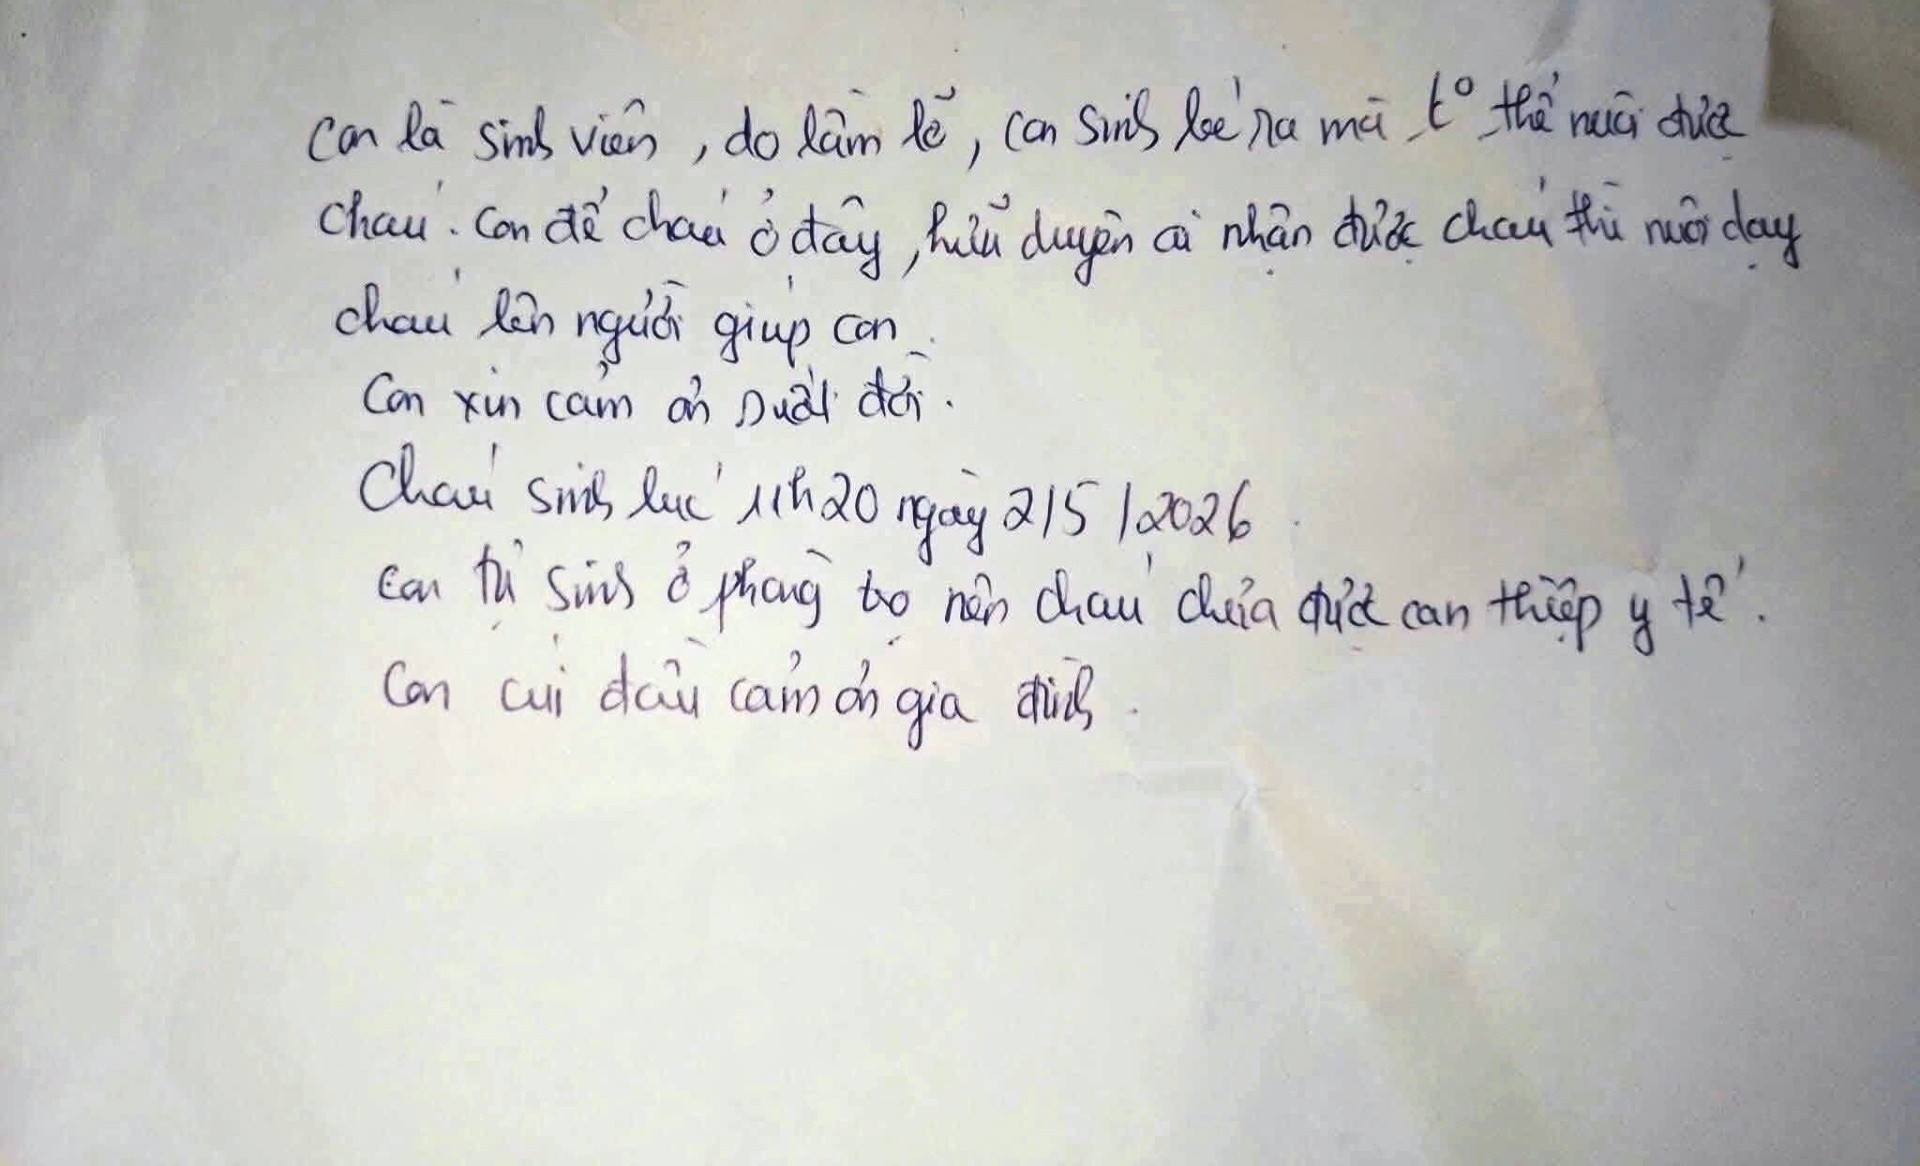 Con là sinh viên, do lầm lỡ, con sinh bé ra mà k° thể nuôi được
cháu. Con để cháu ở đây, hữu duyên ai nhận được cháu thì nuôi dạy
cháu lên người giúp con.
Con xin cảm ơn suốt đời.
Cháu sinh lúc 11h20 ngày 2/5/2026.
Con tự sinh ở phòng trọ nên cháu chưa được can thiệp y tế.
Con cúi đầu cảm ơn gia đình.